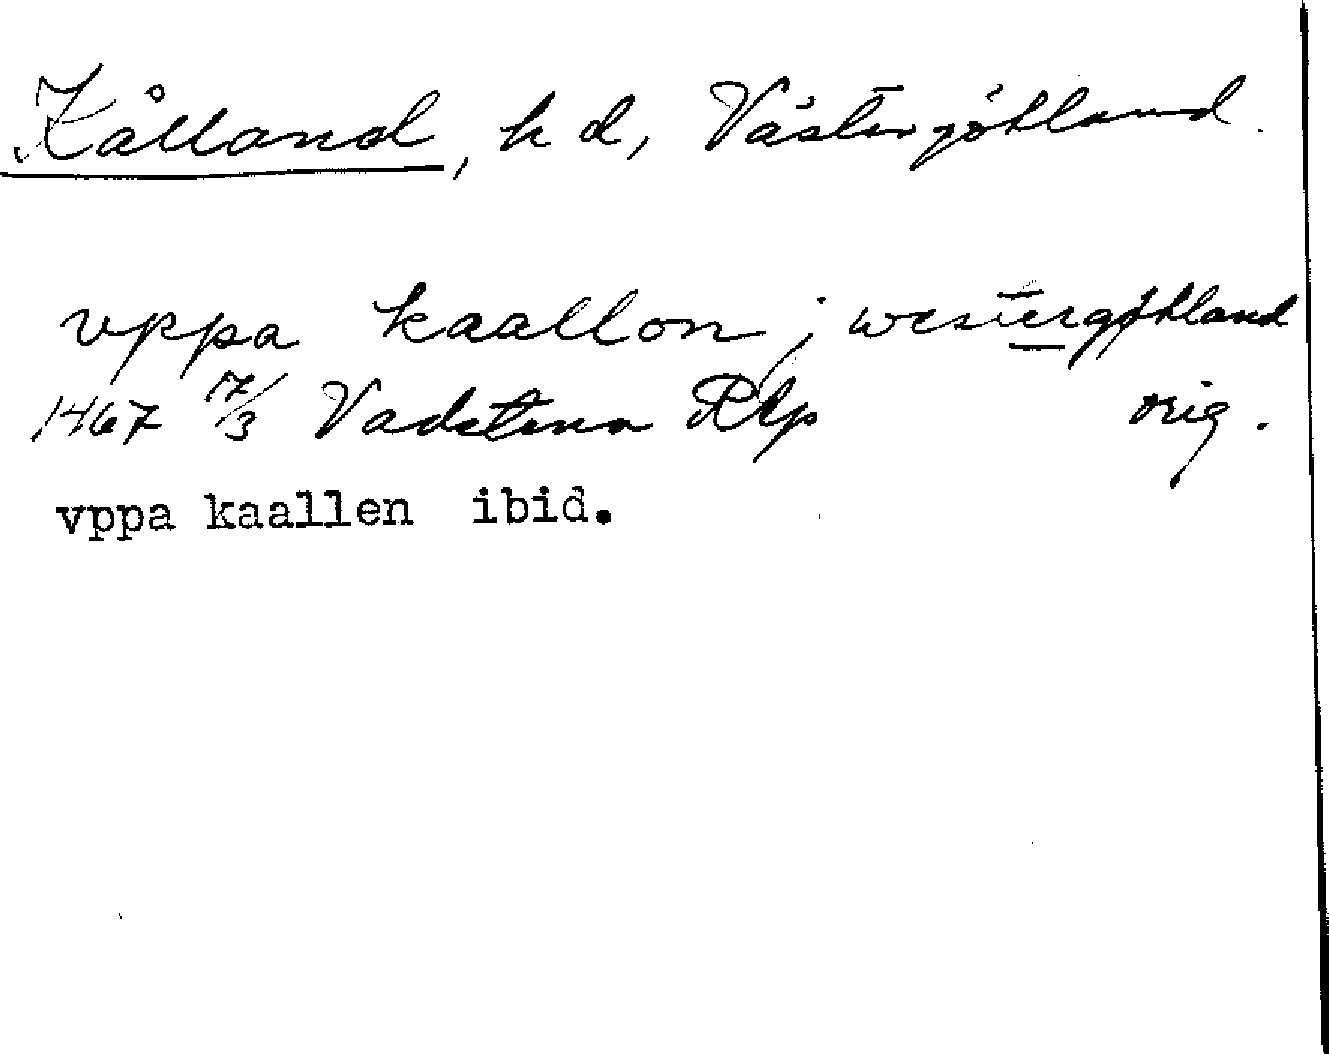 Kålland, hd, Västergötland.
vppa kaallon j westergøtland
1467 17/3 Vadstena RAp orig.
vppa kaallen ibid.